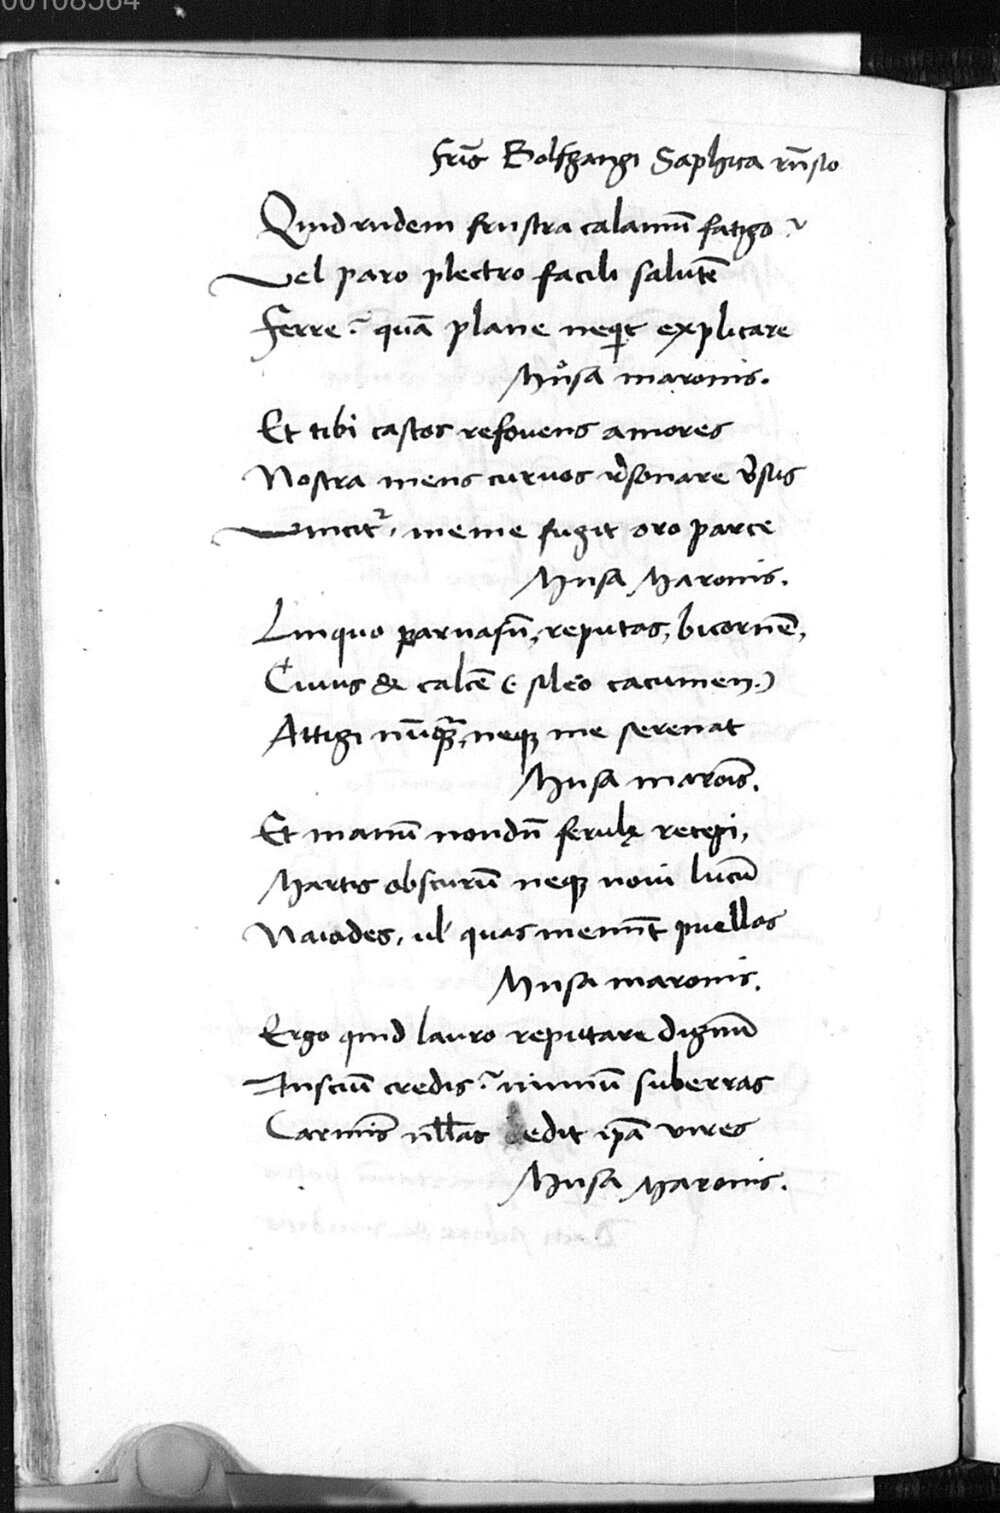 00108564
Fris̄ Bolfgangi Saphica rn̄sio
Quid rudem frustra calamū fatigo?
Vel paro plectro facili salutē
Ferre? quā plane neqit explicare
Můsa maronis.
Et tibi castos refovens amores
Nostra mens curvos rͤsonare vͤsus
Vincit᷑, meme fugit oro parce
Musa Maronis.
Linquo parnasū, reputas, bicornē,
Cuius & calcē (sileo cacumen.)
Attigi nūqᷓ, neqꝫ me serenat
Musa marōis.
Et manū nondū ferulę retegi,
Martis obscurū neqꝫ novi lucū
Naiades, ul' quas memn̄t puellas
Musa maronis.
Ergo quid lauro reputare dignū
Insciū credis? nimiū suberras
Carmīs nll̄as dedit ip̄a vires
Musa Maronis.